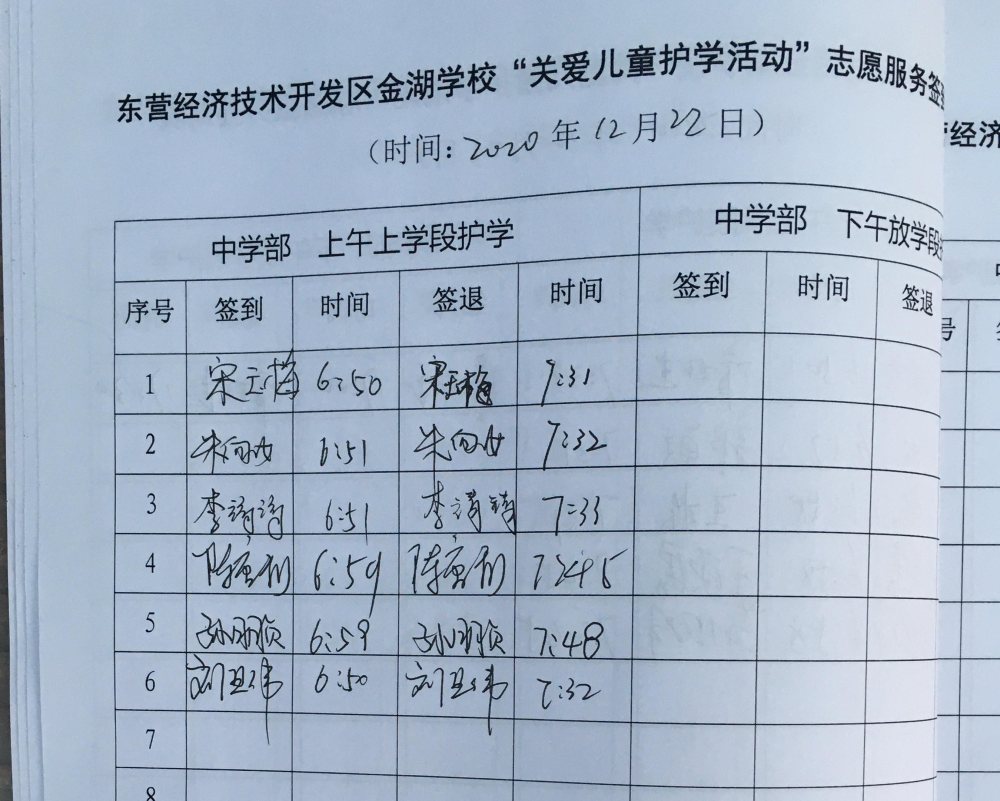 东营经济技术开发区金湖学校“关爱儿童护学活动”志愿服务签
（时间：2020年12月22日）
营经济
中学部 上午上学段护学 中学部 下午放学段
序号 签到 时间 签退 时间 签到 时间 签退
号
1 宋玉梅 6:50 宋玉梅 7:31
2 朱向 6:51 朱向 7:32
3 李 6:51 李 7:33
4 陈 6:59 陈 7:45
5 孙 6:59 孙 7:48
6 刘 6:50 刘 7:32
7
8